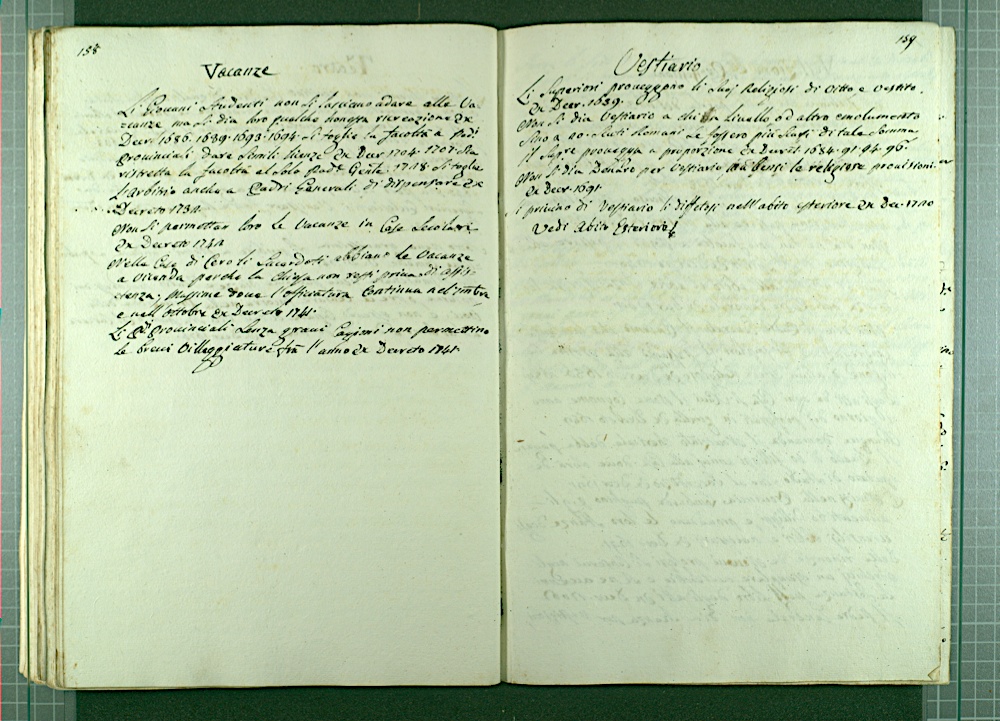 158
Vacanze
Li Giovani Studenti non si lascino andare alle Va-
canze ma si dia loro qualche honesta ricreazione ex
Decr. 1686. 1689. 1693. 1694. si toglie la facoltà a Padi
Provinciali dare simili licenze ex Decr 1704. 1707. Sia
ristretta la facoltà al solo Padre Gente 1718. si toglie
l'arbitrio anche a Padri Generali di dispensare ex
Decreto 1734
Non si permettan loro le Vacanze in Case Secolari
ex Decreto 1734
Nelle Case di Ceto li Sacerdoti abbiano le Vacanze
a vicenda perche la Chiesa non resti priva di assis-
tenza, massime dove l'officiatura continua nel 7mbre
e nell'Ottobre ex Decreto 1741.
Li PP Provinciali senza gravi Cagioni non permettino
le brevi Villeggiature frà l'anno ex Decreto 1741.
159
Vestiario
Li Superiori proveggono li suoi Religiosi di Vitto e Vestito.
ex Decr. 1639.
Non si dia Vestiario a chi ha Livello od altro emolumento
sino a 20. scuti Romani se fossero più scarsi di tale somma
il Supre provegga a proporzione ex Decreti 1684. 91. 94. 96.
Non si dia Denaro per Vestiario ma bensì le religiose provisioni.
ex Decr. 1691.
privino di Vestiario li difetosi nell'abito esteriore ex Dec. 1720
Vedi Abito Esteriore